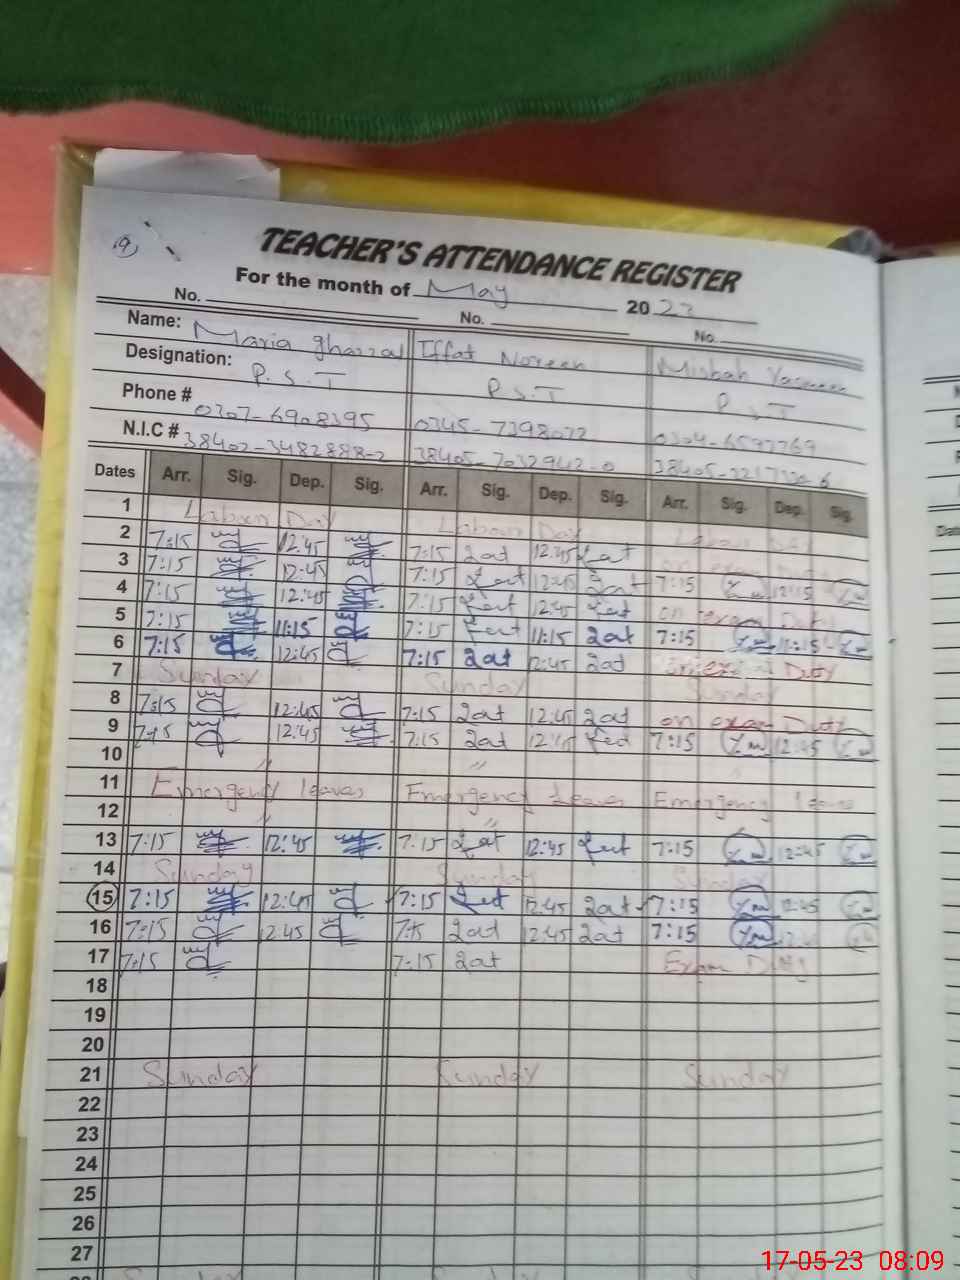 19
TEACHER'S ATTENDANCE REGISTER
For the month of May 2023
No. No. No.
Name: Maria ghazzal Iffat Noreen Misbah Yasmeen
Designation: P.S.T P.S.T P.S.T
Phone # 0307-6908395 0345-7398072 0304-6597769
N.I.C # 38402-3482888-2 38405-7032942-0
Dates Arr. Sig. Dep. Sig. Arr. Sig. Dep. Sig. Arr. Sig. Dep. Sig.
1 Labour Day Labour Day Labour Day
2 7:15 12:45 7:15 12:45 on exam Duty
3 7:15 12:45 7:15 12:45 7:15 12:45
4 7:15 12:45 7:15 12:45 on exam Duty
5 7:15 11:15 7:15 11:15 7:15 11:15
6 7:15 12:45 7:15 12:45 Duty
7 Sunday Sunday Sunday
8 7:15 12:45 7:15 12:45 on exam Duty
9 7:15 12:45 7:15 12:45 7:15 12:45
10 " "
11 Emergency leaves Emergency Leaves Emergency leaves
12 " "
13 7:15 12:45 7:15 12:45 7:15 12:45
14 Sunday Sunday Sunday
15 7:15 12:45 7:15 12:45 7:15 12:45
16 7:15 12:45 7:15 12:45 7:15
17 7:15 7:15 Exam Duty
18
19
20
21 Sunday Sunday Sunday
22
23
24
25
26
27
17-05-23 08:09